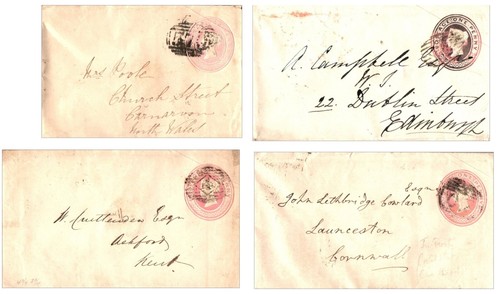 Mrs Poole
Church Street
Carnarvon
North Wales
ONE PENNY
R. Campbell Esqr
W.S.
22. Dublin Street
Edinburgh
W. Cruttenden Esqr
Ashford
Kent
Esqre
John Lethbridge Cowland
Launceston
Cornwall